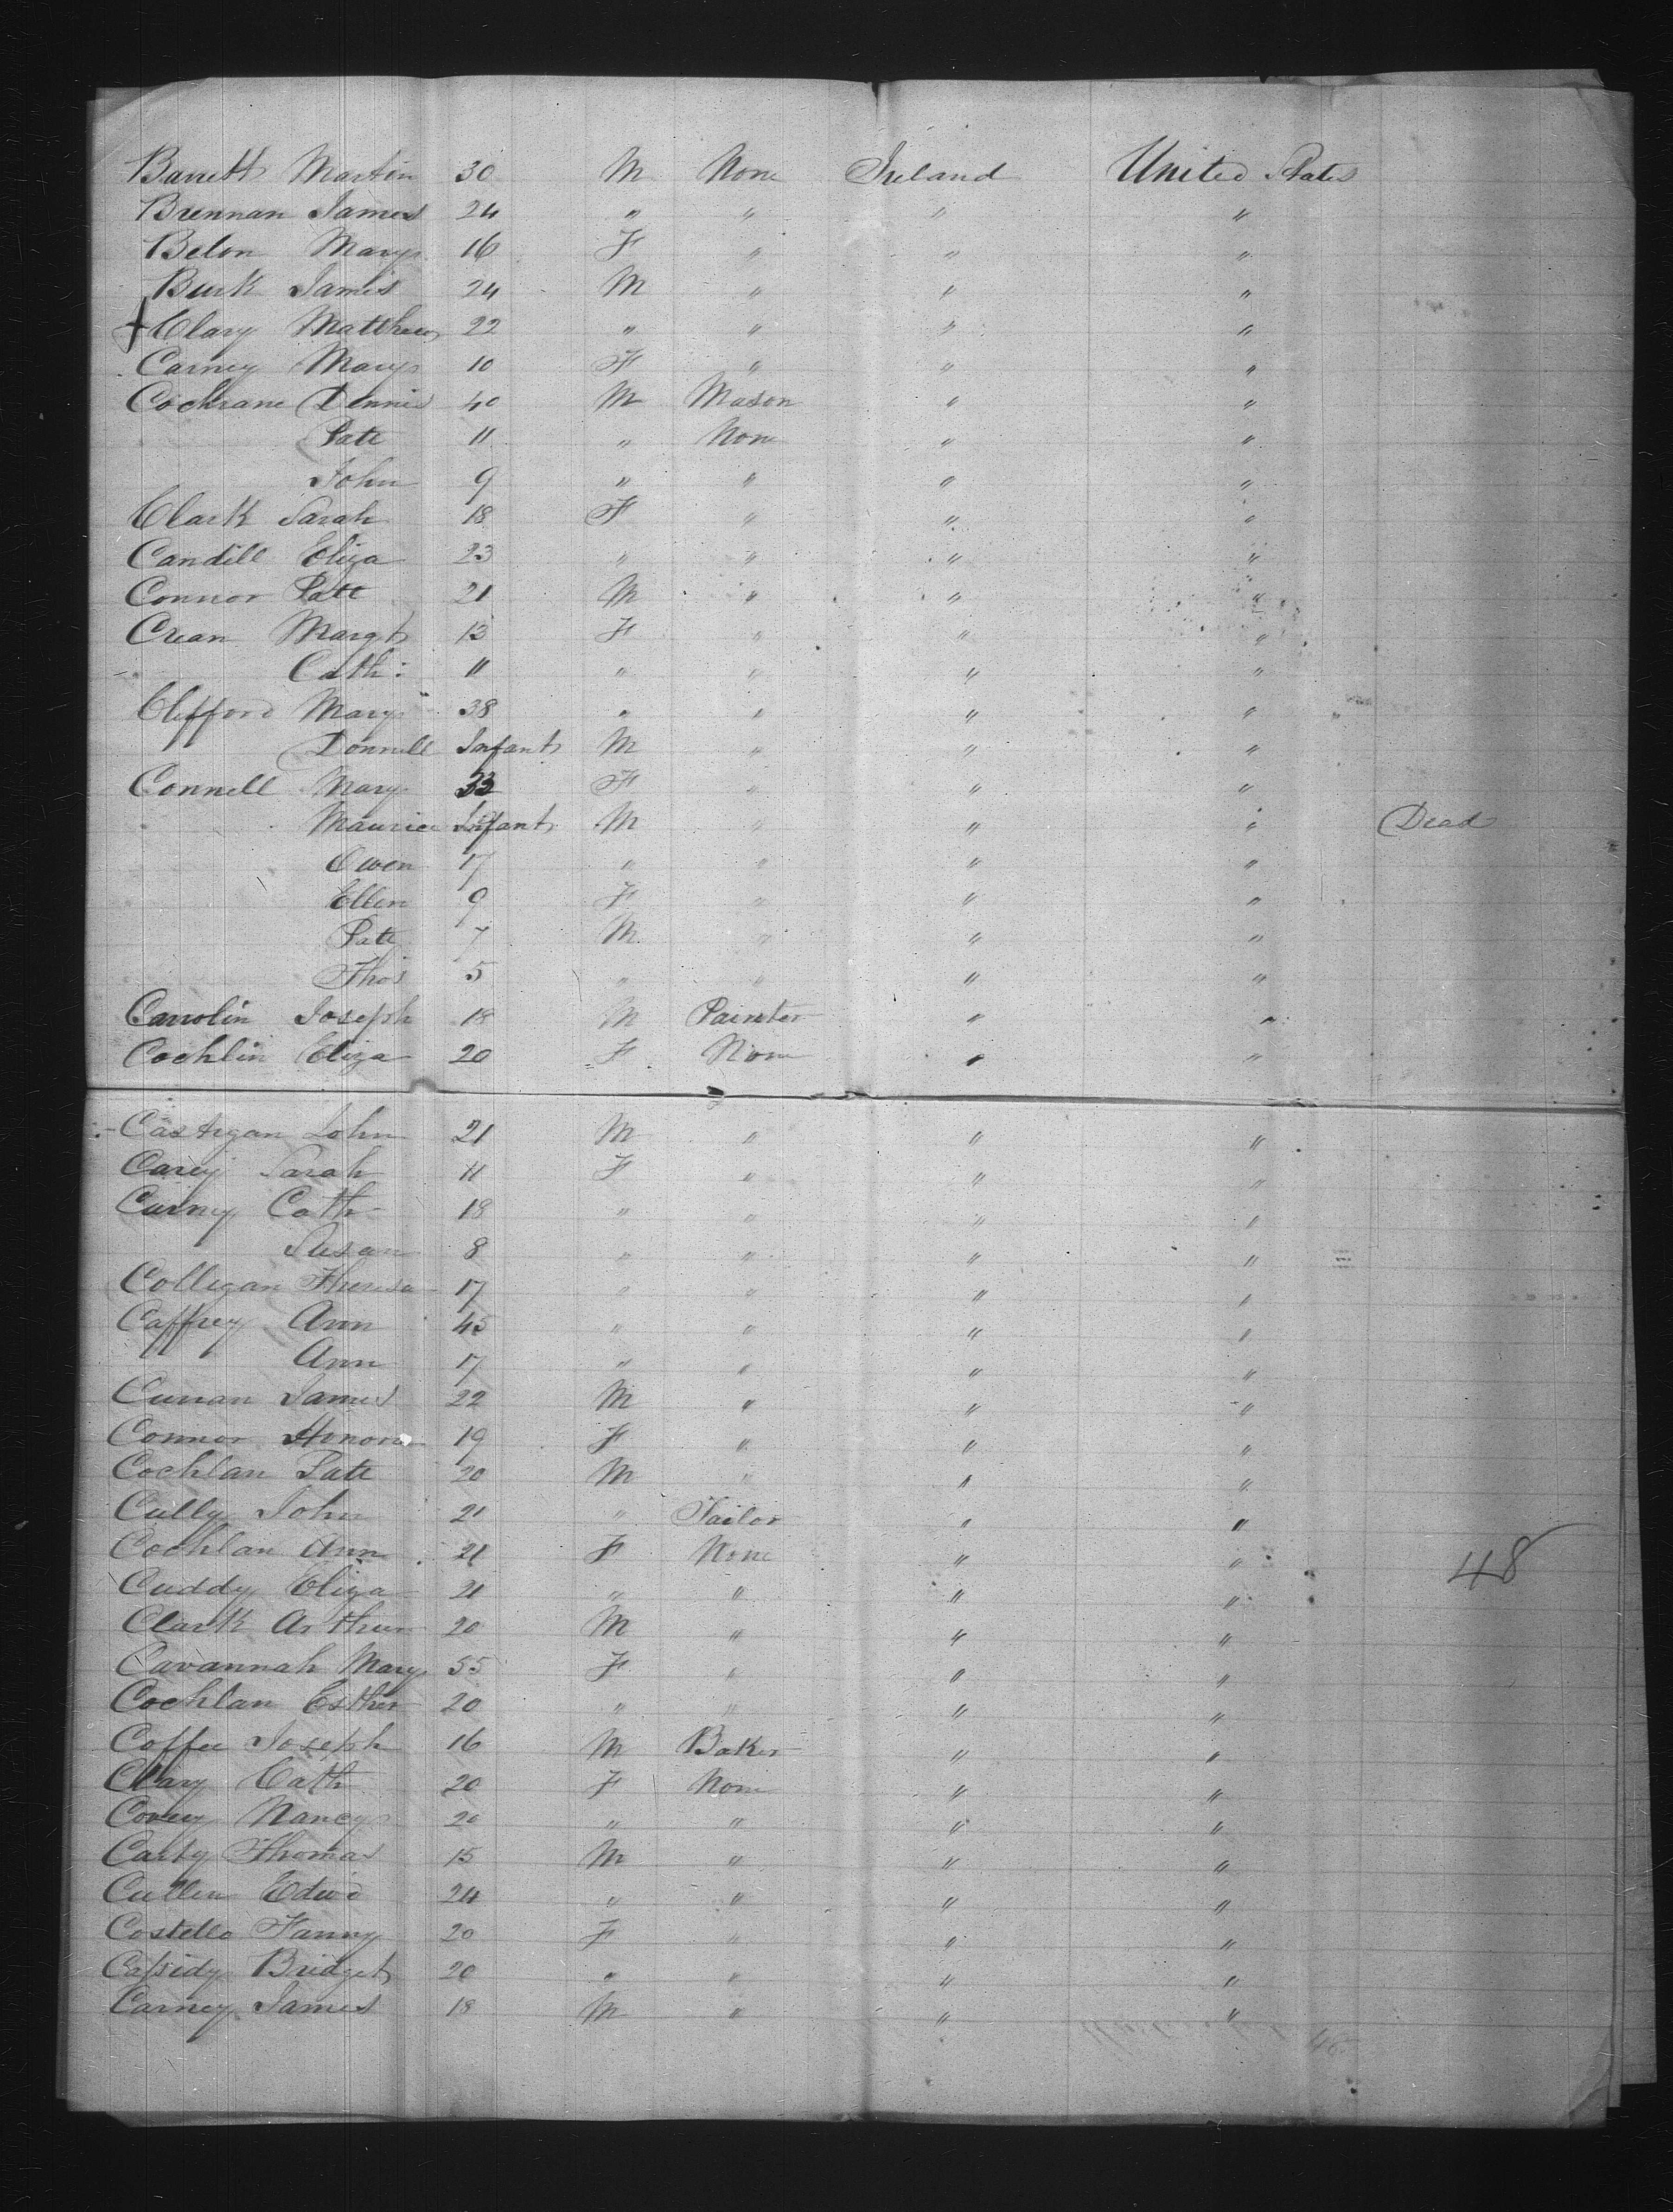 Barrett Martin 30 M None Ireland United States
Brennan James 24 " " " "
Belon Mary 16 F " " "
Burk James 24 M " " "
+ Clary Matthew 22 " " " "
Carney Mary 10 F " " "
Cochrane Dennis 40 M Mason " "
Patt 11 " None " "
John 9 " " " "
Clark Sarah 18 F " " "
Candill Eliza 23 " " " "
Connor Patt 21 M " " "
Crean Margt 13 F " " "
Cath: 11 " " " "
Clifford Mary 38 " " " "
Donnell Infant M " " "
Connell Mary 33 F " " "
Maurice Infant M " " " Dead
Owen 17 " " " "
Ellen 9 F " " "
Patt 7 M " " "
Thos 5 " " " "
Carrolin Joseph 18 M Painter " "
Cochlin Eliza 20 F None " "
Castigan John 21 M " " "
Carey Sarah 11 F " " "
Curney Cath 18 " " " "
Susan 8 " " " "
Colligan Theresa 17 " " " "
Caffrey Ann 45 " " " "
Ann 17 " " " "
Curran James 22 M " " "
Connor Honora 19 F " " "
Cochlan Patt 20 M " " "
Cully John 21 " Tailor " "
Cochlan Ann 21 F None " " 48
Cuddy Eliza 21 " " " "
Clark Arthur 20 M " " "
Cavannah Mary 55 F " " "
Cochlan Esther 20 " " " "
Coffee Joseph 16 M Baker " "
Clary Cath 20 F None " "
Covey Nancy 20 " " " "
Carty Thomas 15 M " " "
Cullen Edwd 24 " " " "
Costello Fanny 20 F " " "
Cassidy Bridget 20 " " " "
Carney James 18 M " " "
48